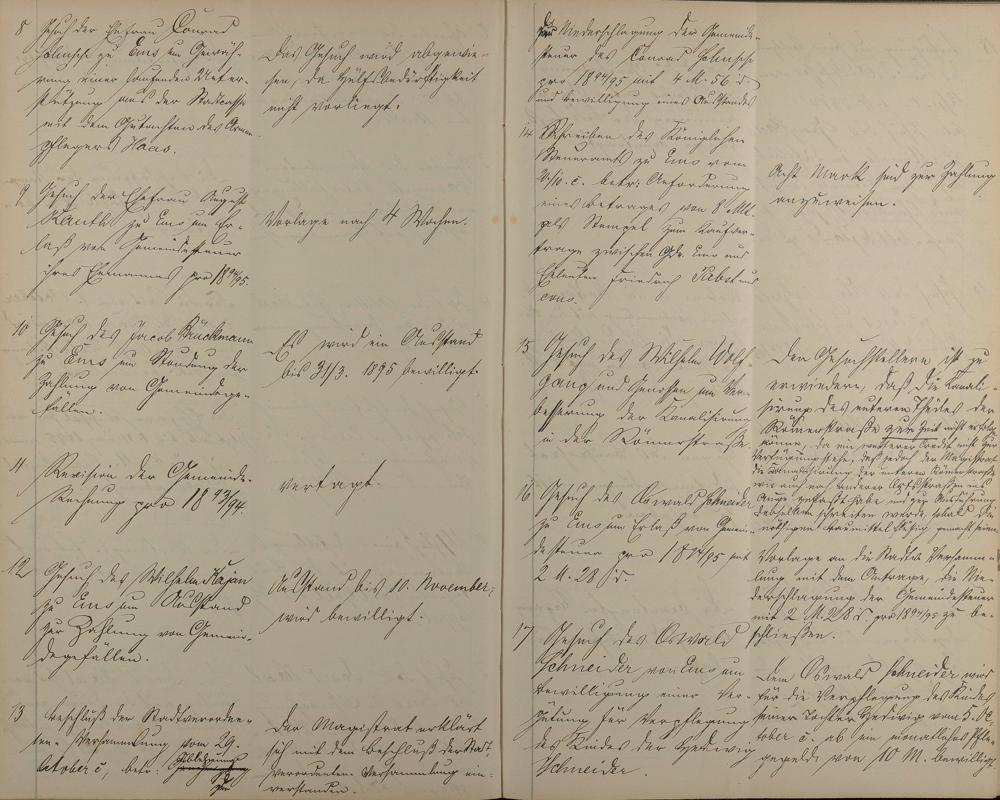 8 Gesuch der Ehefrau Conrad
zu Ems um Gewäh-
rung einer laufenden Unter-
stützung aus der Stadtcasse
mit dem Gutachten des Armen
pflegers Haas.
Das Gesuch wird abgewie-
sen, da Hülfsbedürftigkeit
nicht vorliegt.
9 Gesuch der Ehefrau August
zu Ems um Er-
laß von Gemeindesteuer
ihres Ehemannes pro 1894/95.
Vorlage nach 4 Wochen.
10 Gesuch des Jacob Brückmann
zu Ems um Stundung der
Zahlung von Gemeindege-
fällen.
Es wird ein Ausstand
bis 31/3. 1895 bewilligt.
11 Revision der Gemeinde-
Rechnung pro 1893/94.
vertagt.
12 Gesuch des Wilhelm Kajan
zu Ems um Ausstand
zur Zahlung von Gemein-
degefällen.
Ausstand bis 10. November
wird bewilligt.
13 Beschluß der Stadtverordne-
ten-Versammlung vom 29.
Oktober c., betr.
Der Magistrat erklärt
sich mit dem Beschluß der Stadt
verordneten Versammlung ein-
verstanden.
Niederschlagung der Gemeinde-
steuer des Conrad
pro 1894/95 mit 4 M. 56 d
und Bewilligung eines Ausstandes
14 Schreiben des Königlichen
Steueramts zu Ems vom
c. betr. Anforderung
eines Betrages von 8 Mk.
als Stempel zum Kaufver-
trage zwischen Gde. Ems und
Eheleuten Friedrich und
cons.
Acht Mark sind zur Zahlung
anzuweisen.
15 Gesuch des Wilhelm Wolf-
gang und Genossen um Ver-
besserung der Kanalisirung
in der Römerstraße
Den Gesuchstellern ist zu
erwiedern, daß die Kanali-
sirung des unteren Theiles der
Römerstraße zur Zeit nicht erfolgen
könne, da ein weiterer Credit nicht zur
Verfügung stehe, daß jedoch der Magistrat
die Kanalisirung der unteren Römerstraße
wie auch noch anderer Ortsstraßen ins
Auge gefaßt habe und zur Ausführung
derselben schreiten werde, sobald die
nöthigen Baumittel flüssig gemacht seien
16 Gesuch des Oswald Schneider
zu Ems um Erlaß von Gemein-
desteuer pro 1894/95 mit
2 M. 28 d.
Vorlage an die Stadtv. Versamm-
lung mit dem Antrage, die Nie-
derschlagung der Gemeindesteuer
mit 2 M. 28 d. pro 1894/95 zu be-
schließen.
17 Gesuch des Oswald
Schneider von Ems um
Bewilligung einer Ver-
gütung für Verpflegung
des Kindes der Hedwig
Schneider.
Dem Oswald Schneider wird
für die Verpflegung des Kindes
seiner Tochter Hedwig vom 5. Oc-
tober c. ab ein monatliches Pfle-
gegeld von 10 M. bewilligt